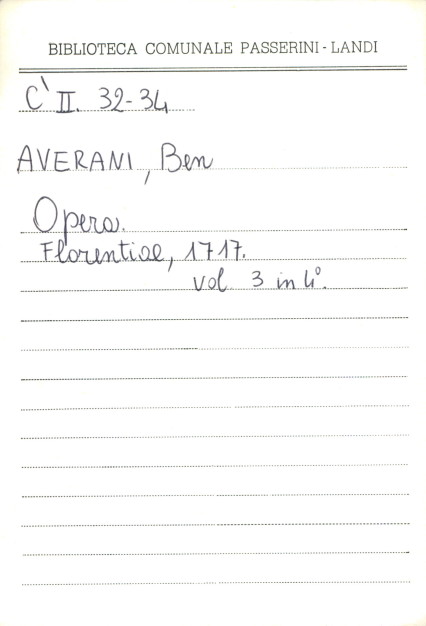 BIBLIOTECA COMUNALE PASSERINI-LANDI
C` II. 32-34
AVERANI, Ben
Opera.
Florentiae, 1717.
vol 3 in 4°.